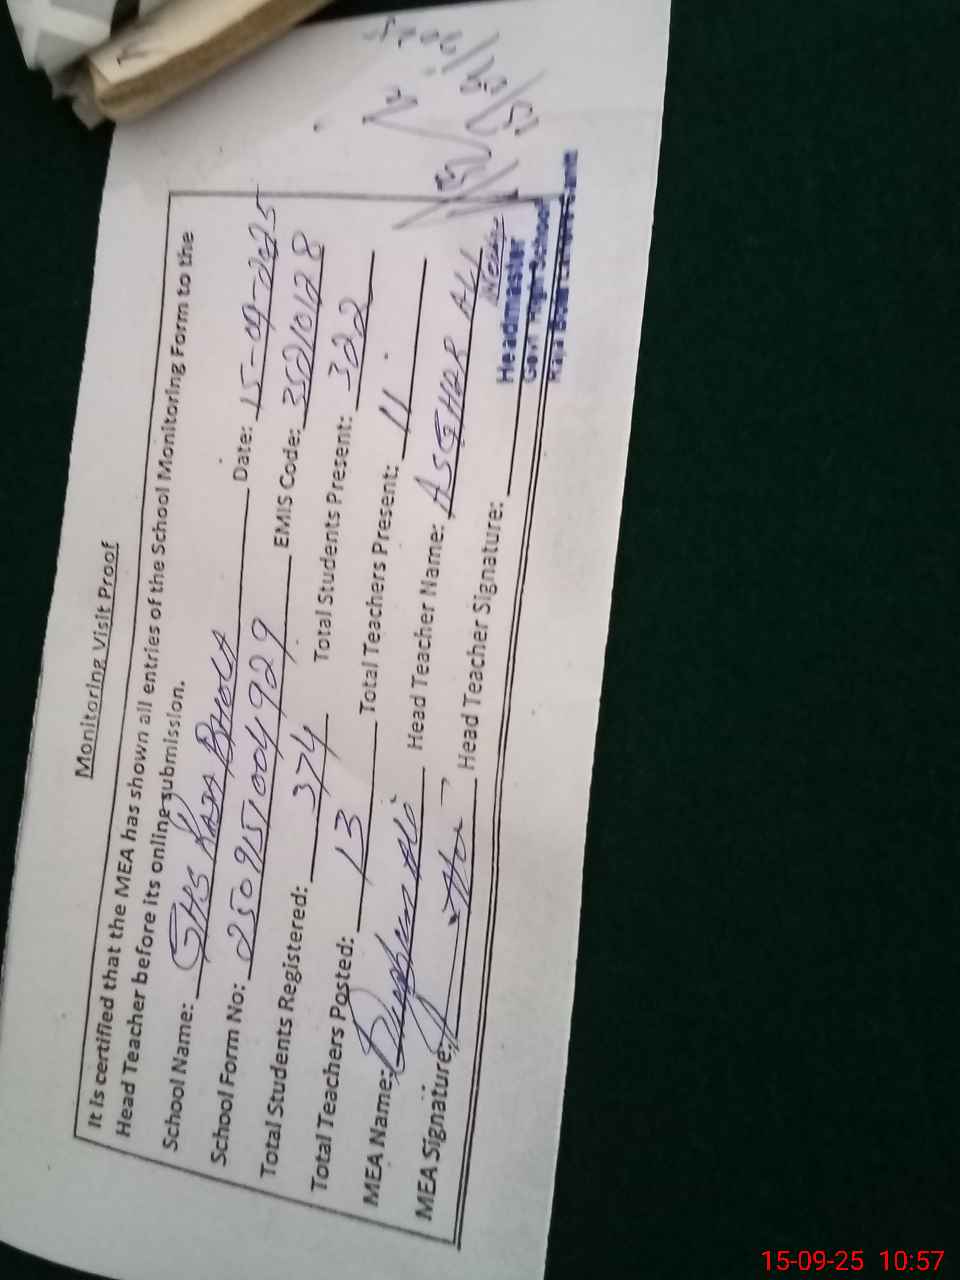 Monitoring Visit Proof
It is certified that the MEA has shown all entries of the School Monitoring Form to the
Head Teacher before its online submission.
School Name: GHS RAJA BHOLA Date: 15-09-2025
School Form No: 2509151004929 EMIS Code: 35210128
Total Students Registered: 374 Total Students Present: 322
Total Teachers Posted: 13 Total Teachers Present: 11
MEA Name: Ali Head Teacher Name: ASGHAR ALI
MEA Signature: Head Teacher Signature:
Headmaster
Govt High School
Raja Lahore Cantt
15/09/2025
15-09-25 10:57